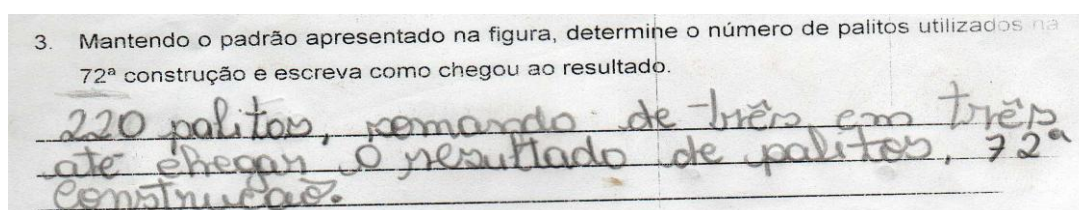 3. Mantendo o padrão apresentado na figura, determine o número de palitos utilizados na
72ª construção e escreva como chegou ao resultado.
220 palitos, somando de três em três
até chegar o resultado de palitos, 72ª
construção.